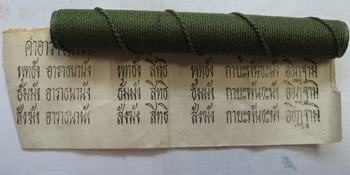 คำอาราธนา
พุทธัง อาราธนานัง พุทธัง สิทธิ พุทธัง กายะพันธะนัง อธิฏฐามิ
ธัมมัง อาราธนานัง ธัมมัง สิทธิ ธัมมัง กายะพันธะนัง อธิฏฐามิ
สังฆัง อาราธนานัง สังฆัง สิทธิ สังฆัง กายะพันธะนัง อธิฏฐามิ